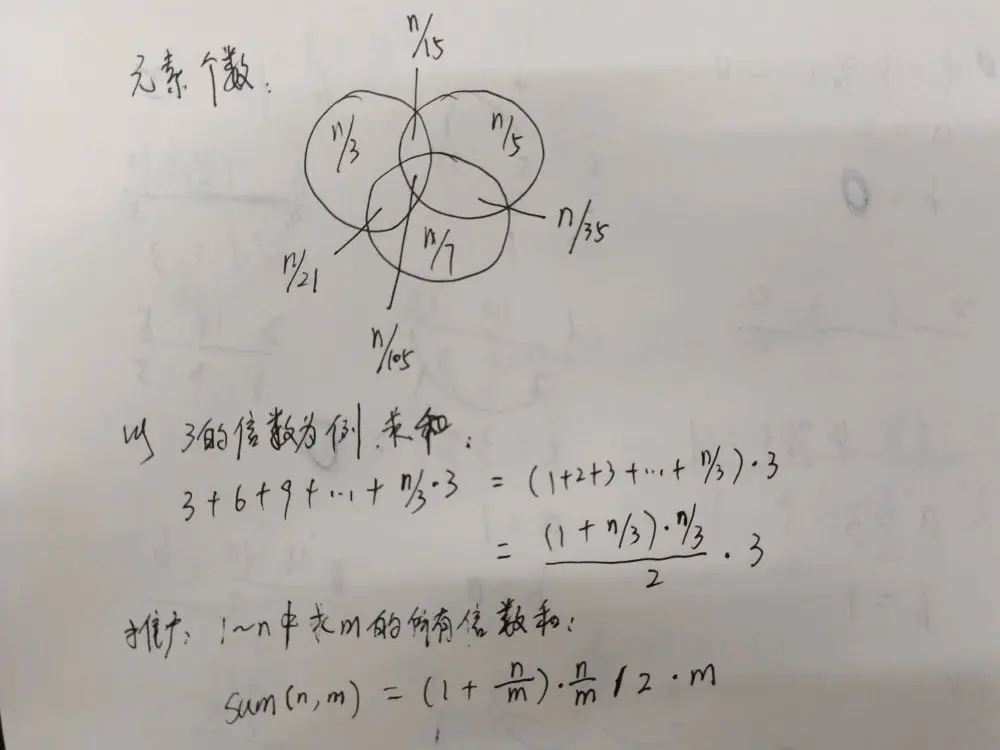 n/15
元素个数:
n/3
n/5
n/35
n/7
n/21
n/105
以 3的倍数为例,求和:
3+6+9+...+ n/3·3 = (1+2+3+...+ n/3)·3
= (1+n/3)·n/3 / 2 · 3
推广: 1~n中求m的所有倍数和:
sum(n,m) = (1 + n/m)·n/m / 2 · m